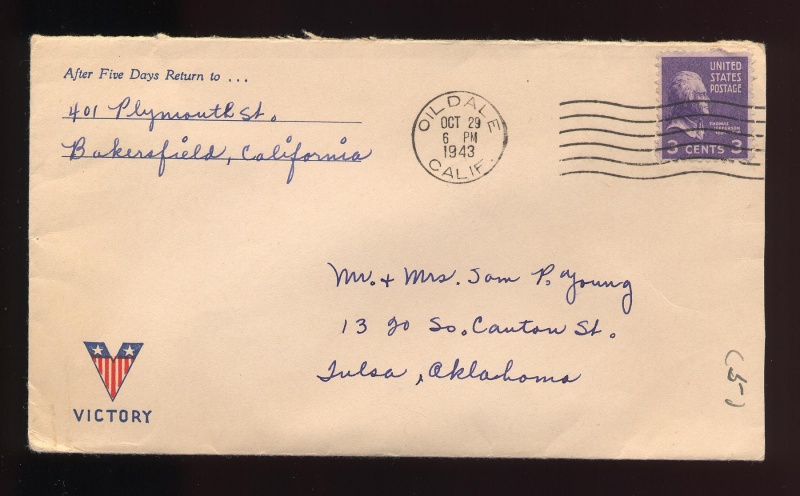 After Five Days Return to . . .
401 Plymouth St.
Bakersfield, California
OILDALE
OCT 29
6 PM
1943
CALIF.
UNITED
STATES
POSTAGE
THOMAS
JEFFERSON
3 CENTS 3
Mr. + Mrs. Sam P. Young
13 20 So. Canton St.
Tulsa, Oklahoma
VICTORY